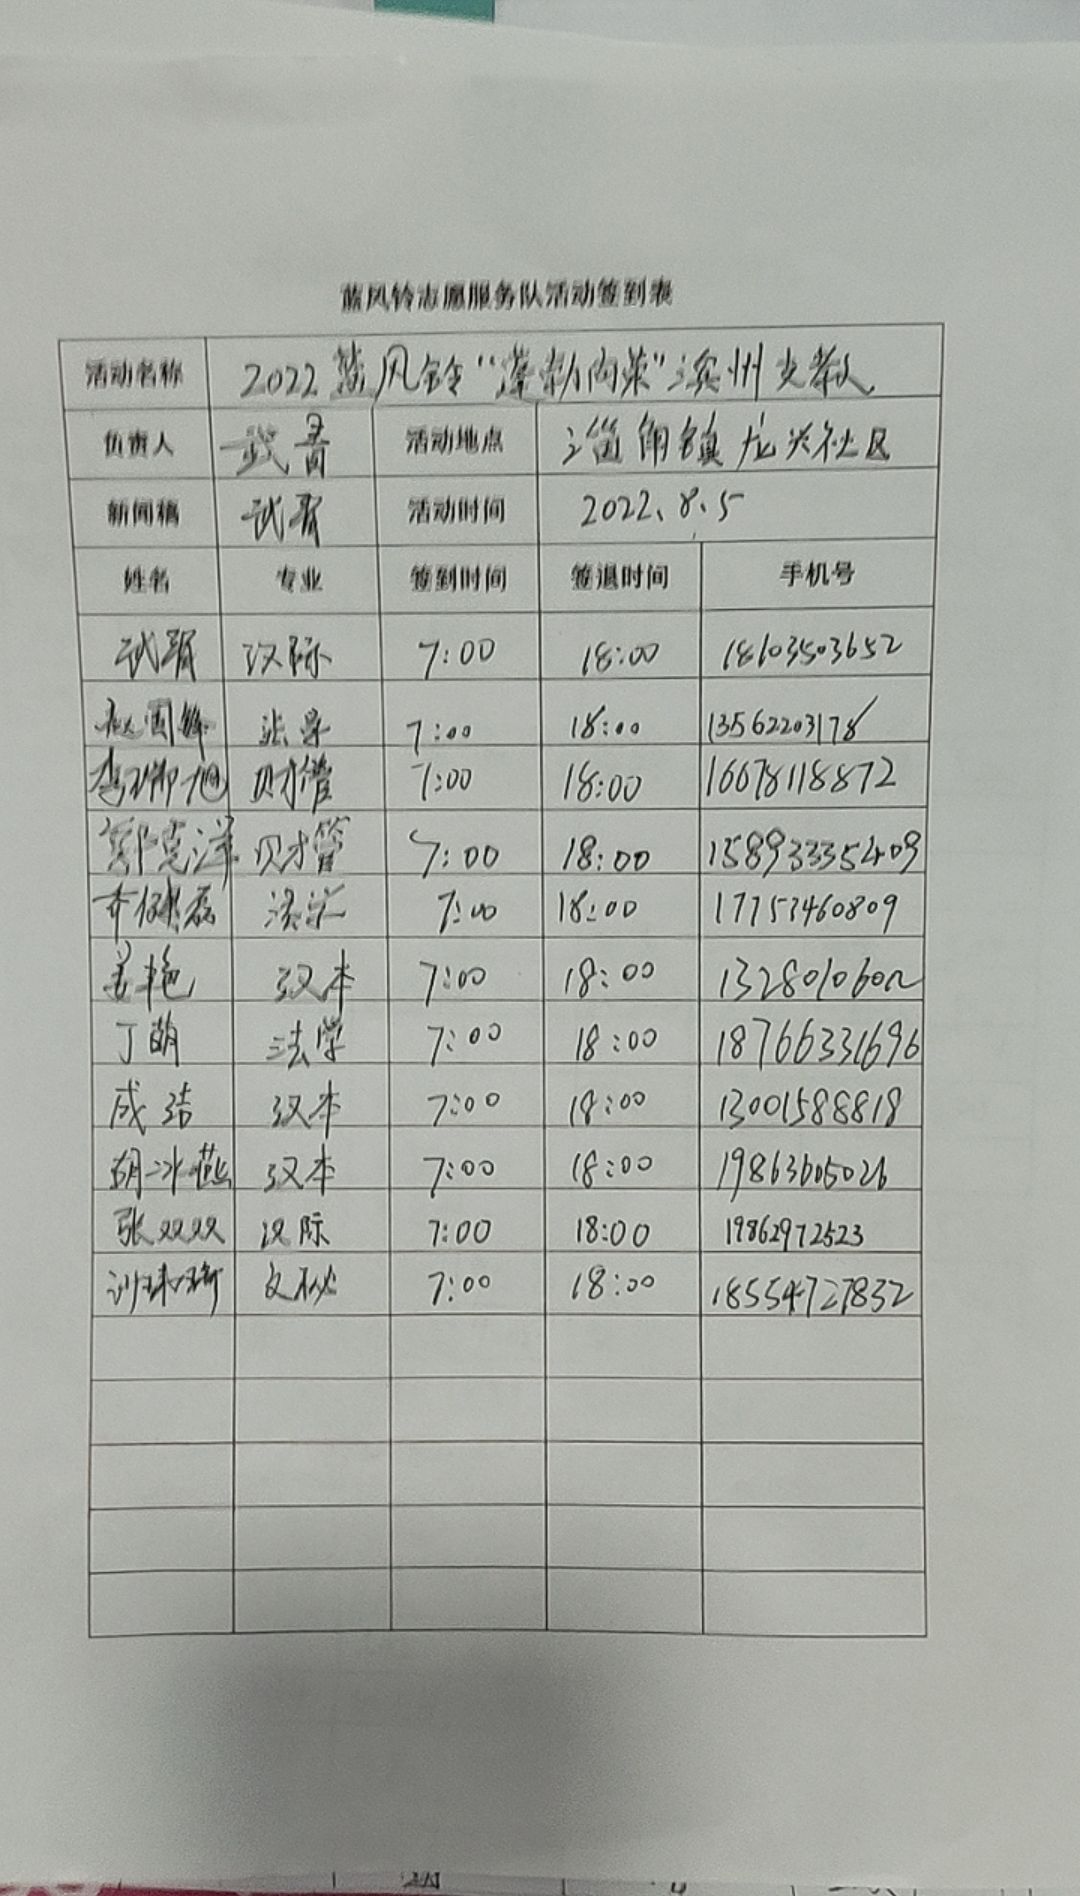 蓝风铃志愿服务队活动签到表
活动名称 2022蓝风铃“蓬勃向莱”滨州支教
负责人 武晋 活动地点 淄角镇龙兴社区
新闻稿 活动时间 2022.8.5
姓名 专业 签到时间 签退时间 手机号
汉际 7:00 18:00 18603503652
法学 7:00 18:00 13562203178
财管 7:00 18:00 16678118872
郭克洋 财管 7:00 18:00 15893335409
法学 7:00 18:00 17753460809
姜艳 汉本 7:00 18:00
丁萌 法学 7:00 18:00 18766331696
成洁 汉本 7:00 18:00 13001588818
胡冰燕 汉本 7:00 18:00 19863605026
张双双 汉际 7:00 18:00 19862972523
文秘 7:00 18:00 18554727832